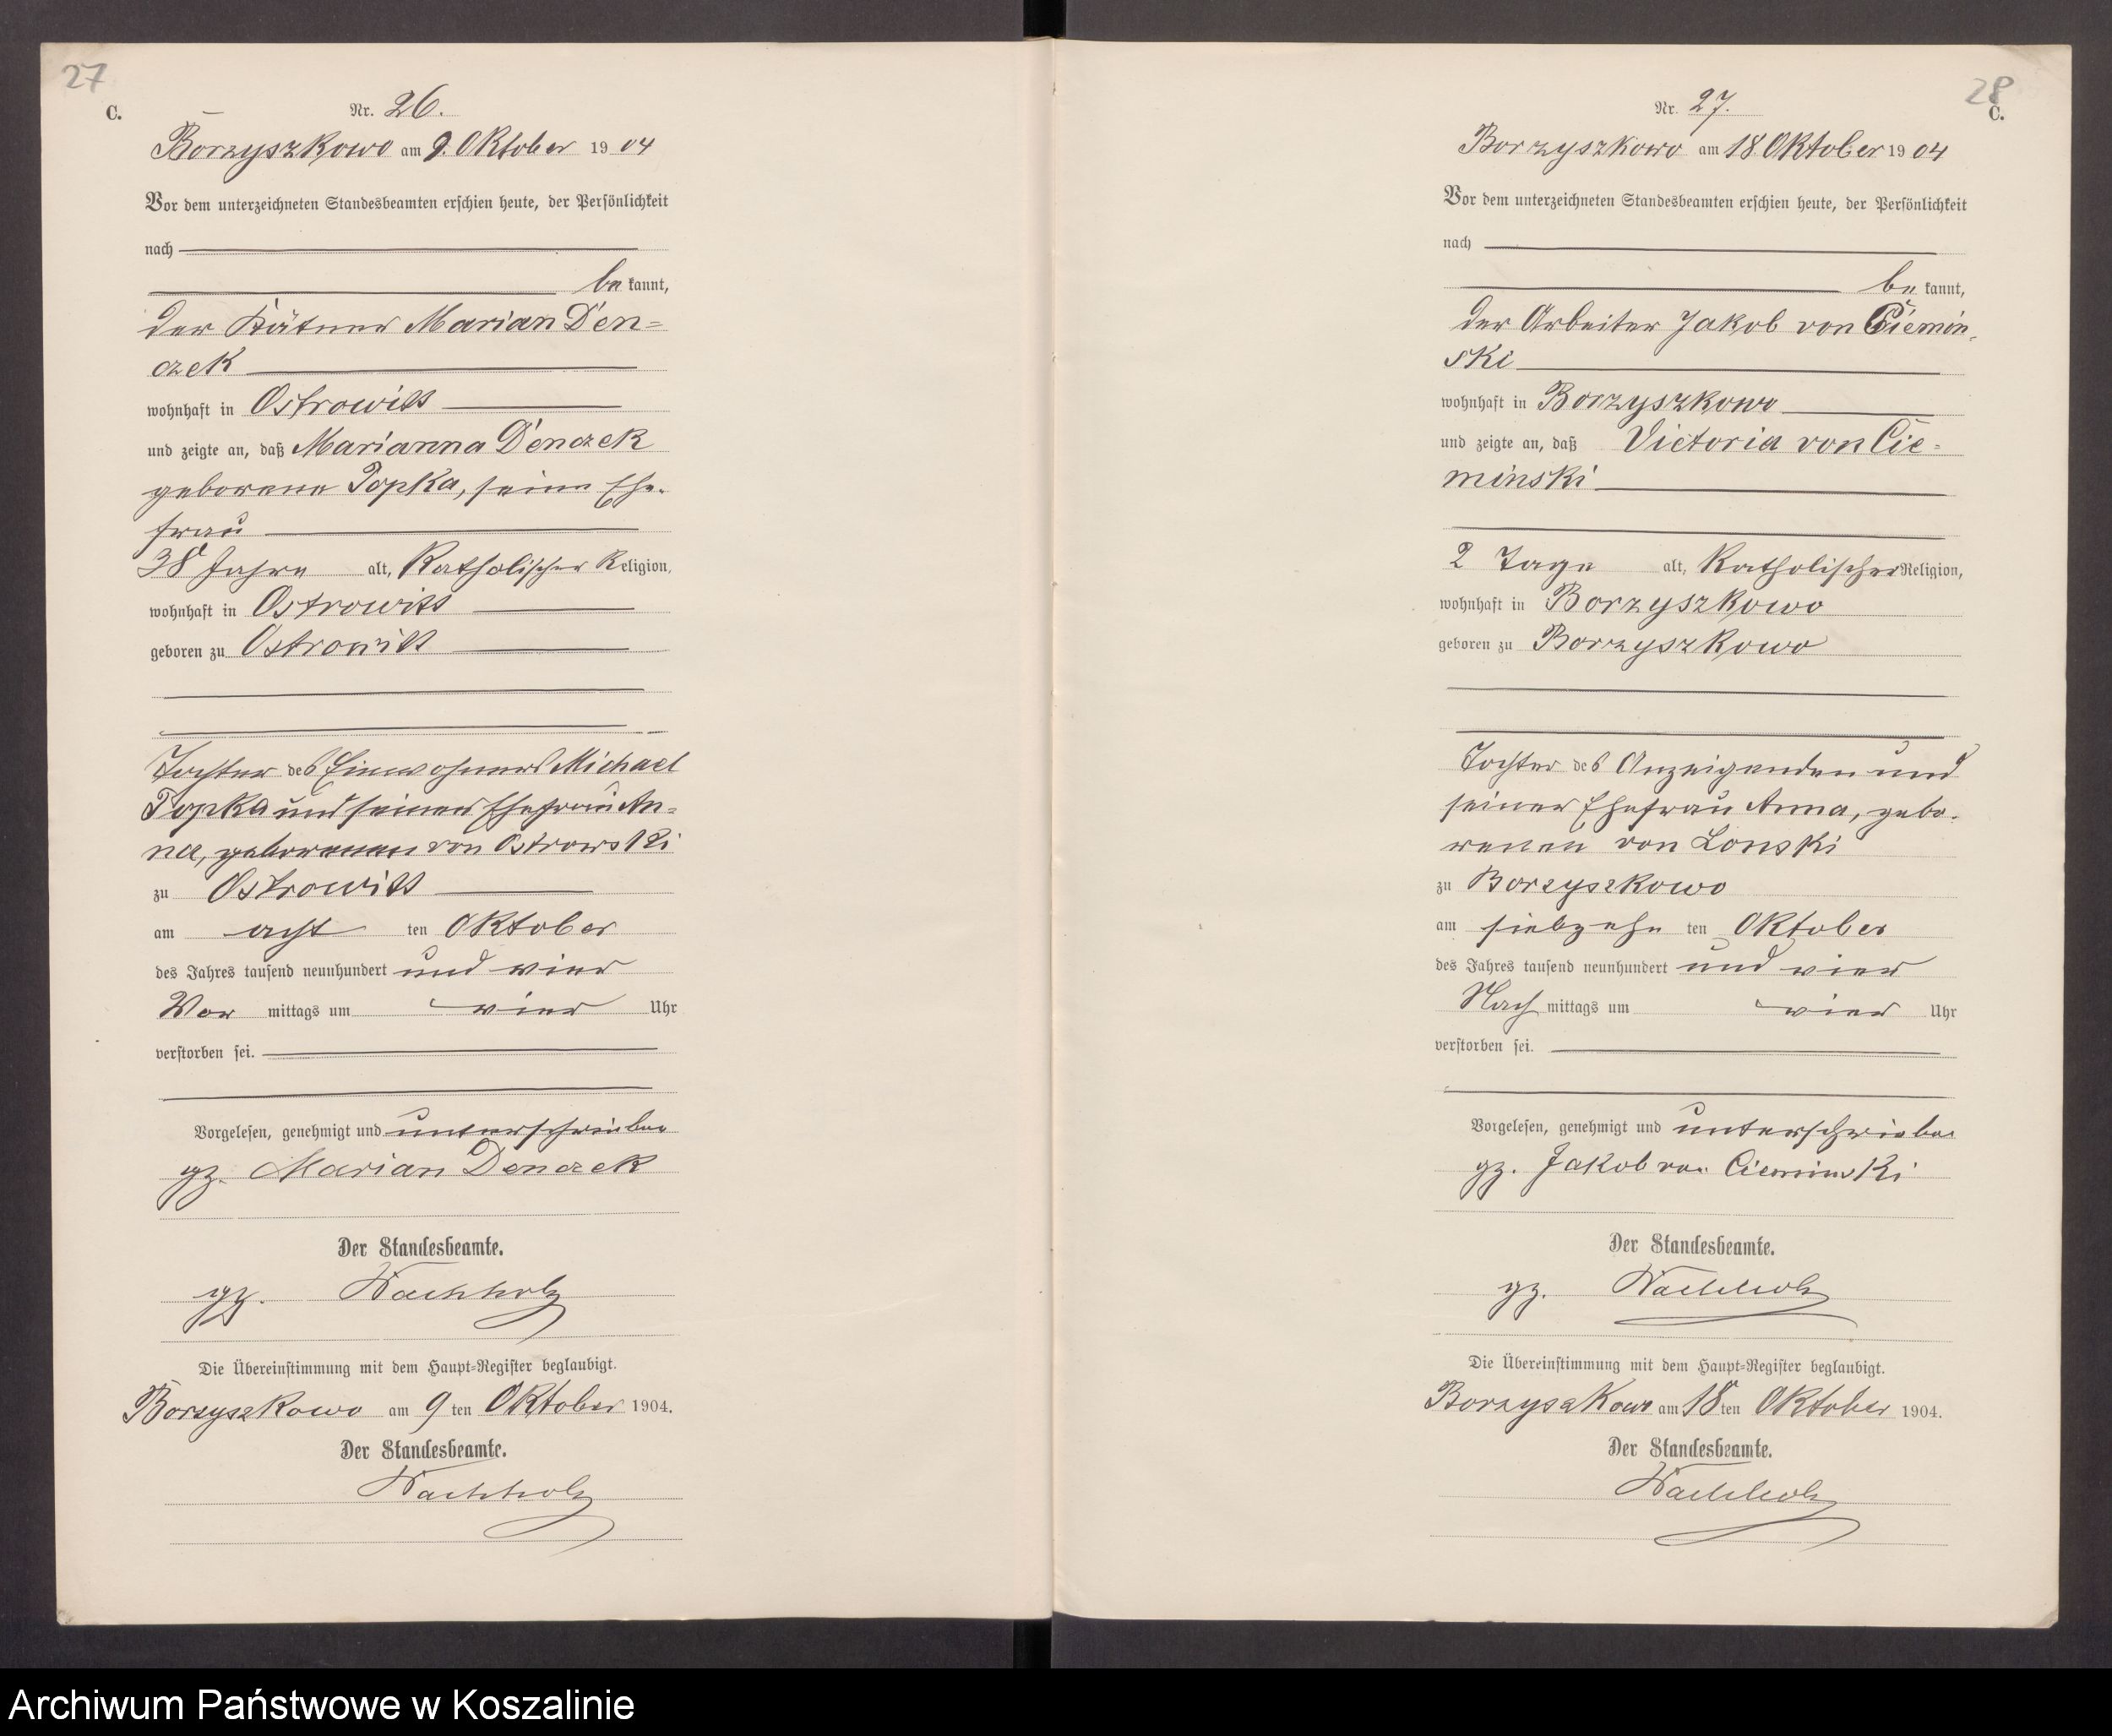 27
C.
Nr. 26.
Borzyszkowo am 9. Oktober 1904
Vor dem unterzeichneten Standesbeamten erschien heute, der Persönlichkeit
nach
bekannt,
der Kätner Marian Den=
czek
wohnhaft in Ostrowitt
und zeigte an, daß Marianna Denczek
geborene Topka, seine Ehe-
frau
38 Jahre alt, Katholischer Religion,
wohnhaft in Ostrowitt
geboren zu Ostrowitt
Tochter des Einwohners Michael
Topka und seiner Ehefrau An=
na, geborenen von Ostrowski
zu Ostrowitt
am acht ten Oktober
des Jahres tausend neunhundert und vier
Vor mittags um vier Uhr
verstorben sei.
Vorgelesen, genehmigt und unterschrieben
gz. Marian Denczek
Der Standesbeamte.
gz. Wachholz
Die Übereinstimmung mit dem Haupt=Register beglaubigt.
Borzyszkowo am 9 ten Oktober 1904.
Der Standesbeamte.
Wachholz
28
C.
Nr. 27.
Borzyszkowo am 18. Oktober 1904
Vor dem unterzeichneten Standesbeamten erschien heute, der Persönlichkeit
nach
bekannt,
der Arbeiter Jakob von Ciemin-
ski
wohnhaft in Borzyszkowo
und zeigte an, daß Victoria von Cie=
minski
2 Tage alt, Katholischer Religion,
wohnhaft in Borzyszkowo
geboren zu Borzyszkowo
Tochter des Anzeigenden und
seiner Ehefrau Anna, gebo-
renen von Lonski
zu Borzyszkowo
am siebzehn ten Oktober
des Jahres tausend neunhundert und vier
Nach mittags um vier Uhr
verstorben sei.
Vorgelesen, genehmigt und unterschrieben
gz. Jakob von Cieminski
Der Standesbeamte.
gz. Wachholz
Die Übereinstimmung mit dem Haupt=Register beglaubigt.
Borzyszkowo am 18 ten Oktober 1904.
Der Standesbeamte.
Wachholz
Archiwum Państwowe w Koszalinie